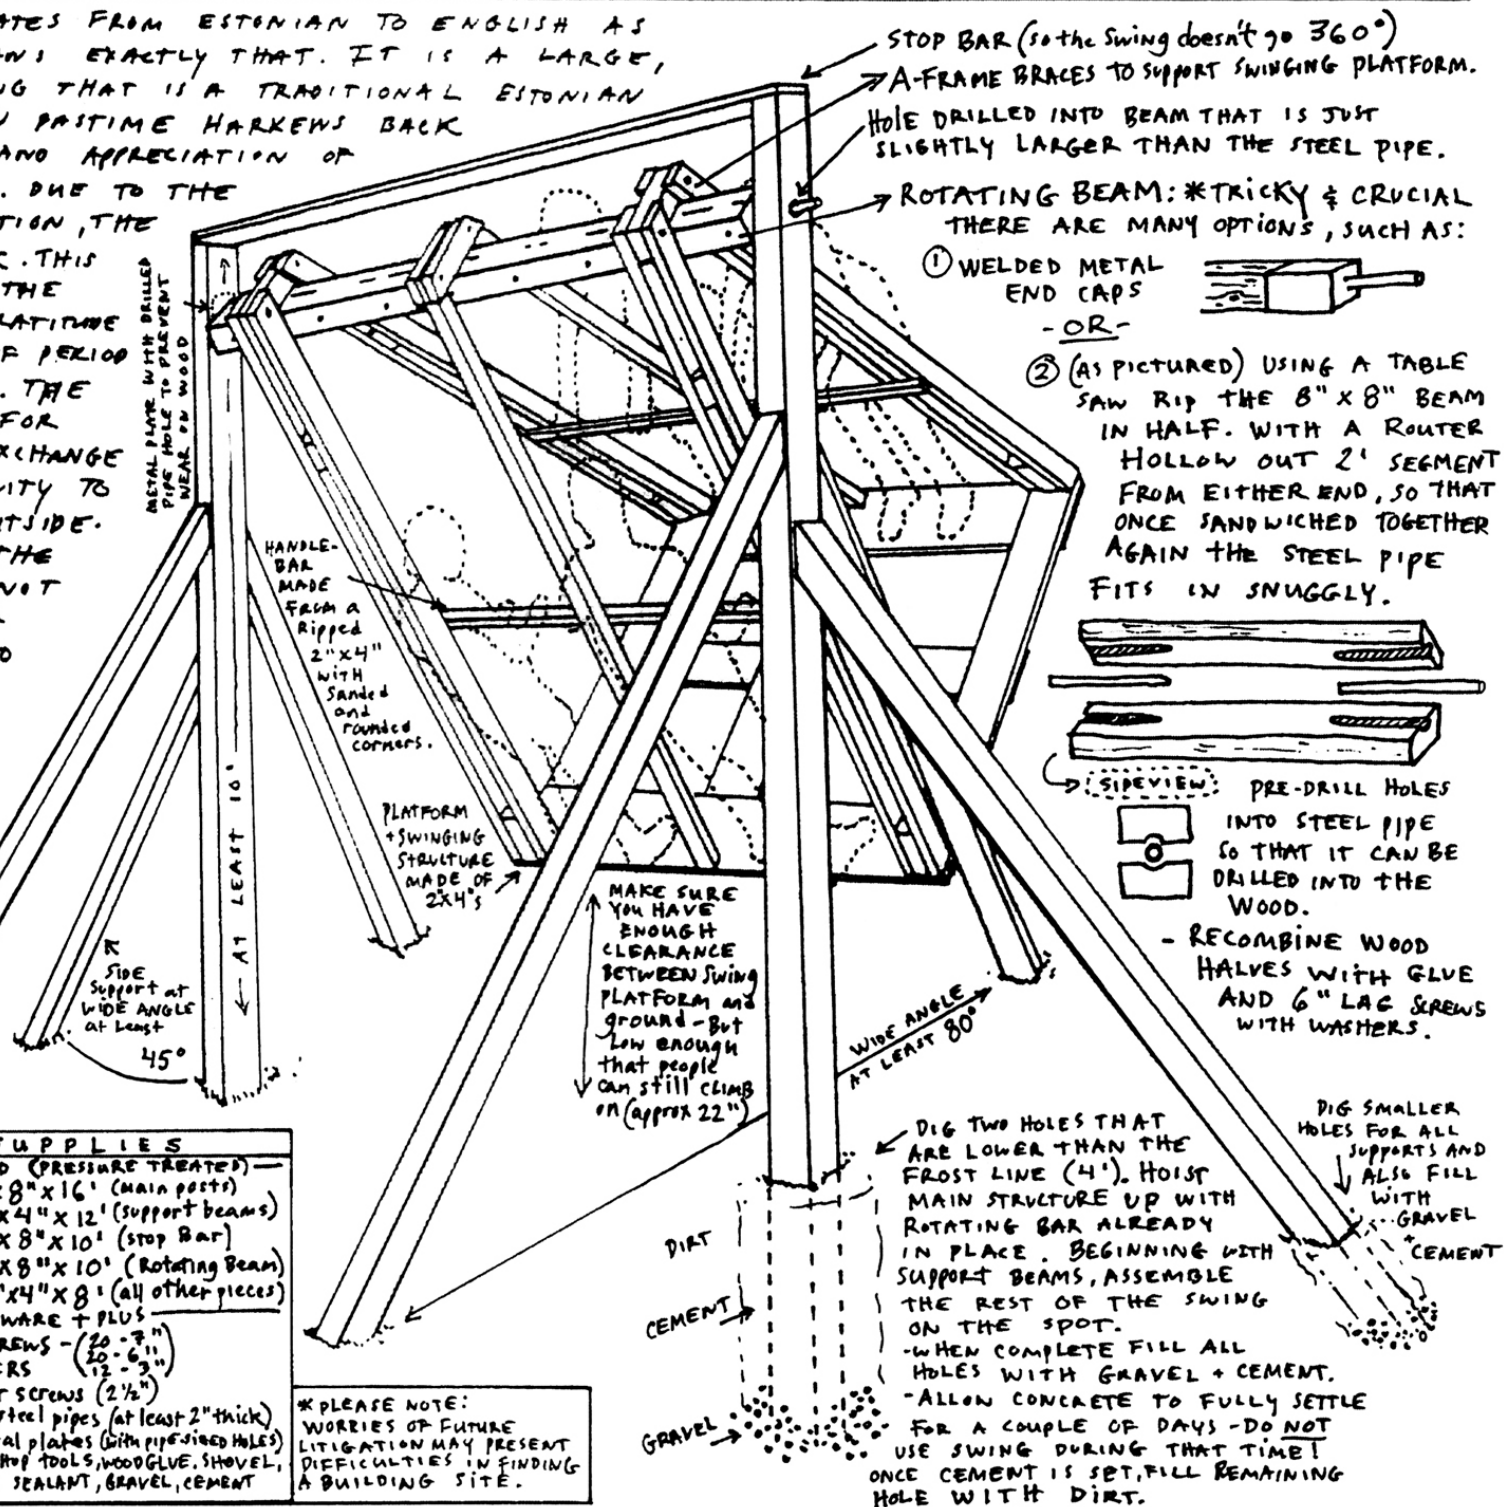 ATES FROM ESTONIAN TO ENGLISH AS
NS EXACTLY THAT. IT IS A LARGE,
NG THAT IS A TRADITIONAL ESTONIAN
PASTIME HARKEWS BACK
AND APPRECIATION OF
. DUE TO THE
TION, THE
. THIS
THE
LATITUDE
F PERIOD
. THE
FOR
XCHANGE
VITY TO
TSIDE.
THE
NOT
O
METAL PLATE WITH DRILLED
PIPE HOLE TO PREVENT
WEAR ON WOOD
STOP BAR (so the Swing doesn't go 360°)
A-FRAME BRACES TO SUPPORT SWINGING PLATFORM.
HOLE DRILLED INTO BEAM THAT IS JUST
SLIGHTLY LARGER THAN THE STEEL PIPE.
ROTATING BEAM: *TRICKY & CRUCIAL
THERE ARE MANY OPTIONS, SUCH AS:
① WELDED METAL
END CAPS
- OR -
② (AS PICTURED) USING A TABLE
SAW RIP THE 8" X 8" BEAM
IN HALF. WITH A ROUTER
HOLLOW OUT 2' SEGMENT
FROM EITHER END, SO THAT
ONCE SANDWICHED TOGETHER
AGAIN THE STEEL PIPE
FITS IN SNUGGLY.
SIDEVIEW
PRE-DRILL HOLES
INTO STEEL PIPE
SO THAT IT CAN BE
DRILLED INTO THE
WOOD.
- RECOMBINE WOOD
HALVES WITH GLUE
AND 6" LAG SCREWS
WITH WASHERS.
HANDLE-
BAR
MADE
FROM a
Ripped
2"x4"
with
Sanded
and
rounded
corners.
PLATFORM
+ SWINGING
STRUCTURE
MADE OF
2x4's
AT LEAST 10'
SIDE
Support at
WIDE ANGLE
at Least
45°
MAKE SURE
YOU HAVE
ENOUGH
CLEARANCE
BETWEEN SWING
PLATFORM and
ground - But
Low enough
that people
can still CLIMB
on (approx 22")
WIDE ANGLE
AT LEAST 80°
DIG TWO HOLES THAT
ARE LOWER THAN THE
FROST LINE (4'). HOIST
MAIN STRUCTURE UP WITH
ROTATING BAR ALREADY
IN PLACE. BEGINNING WITH
SUPPORT BEAMS, ASSEMBLE
THE REST OF THE SWING
ON THE SPOT.
- WHEN COMPLETE FILL ALL
HOLES WITH GRAVEL + CEMENT.
- ALLOW CONCRETE TO FULLY SETTLE
FOR A COUPLE OF DAYS - DO NOT
USE SWING DURING THAT TIME!
ONCE CEMENT IS SET, FILL REMAINING
HOLE WITH DIRT.
DIG SMALLER
HOLES FOR ALL
SUPPORTS AND
ALSO FILL
WITH
GRAVEL
+
CEMENT
DIRT
CEMENT
GRAVEL
SUPPLIES
D (PRESSURE TREATED) —
8" x 16' (Main posts)
x 4" x 12' (support beams)
x 8" x 10' (Stop Bar)
x 8" x 10' (Rotating Beam)
"x4" x 8' (all other pieces)
WARE + PLUS
REWS - (20 - 7"
ERS 20 - 6"
12 - 3")
screws (2½")
steel pipes (at least 2" thick)
al plates (with PIPE-SIZED HOLES)
HOP TOOLS, WOODGLUE, SHOVEL,
SEALANT, GRAVEL, CEMENT
* PLEASE NOTE:
WORRIES OF FUTURE
LITIGATION MAY PRESENT
DIFFICULTIES IN FINDING
A BUILDING SITE.